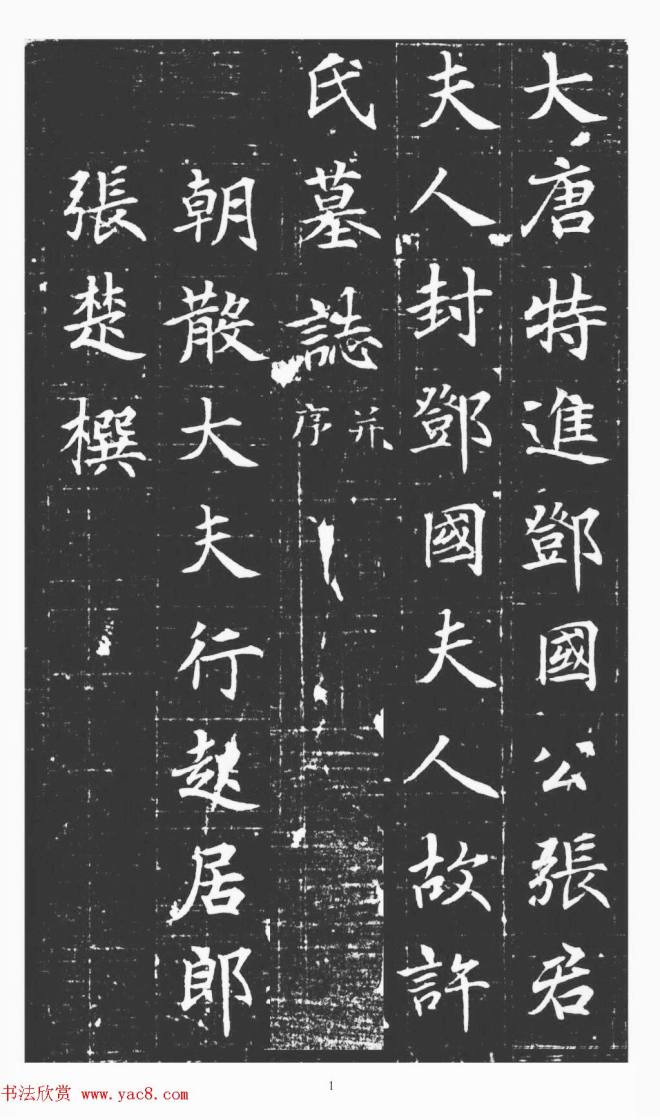 大唐特進鄧國公張君
夫人封鄧國夫人故許
氏墓誌并序
朝散大夫行起居郎
張楚撰
书法欣赏 www.yac8.com
1